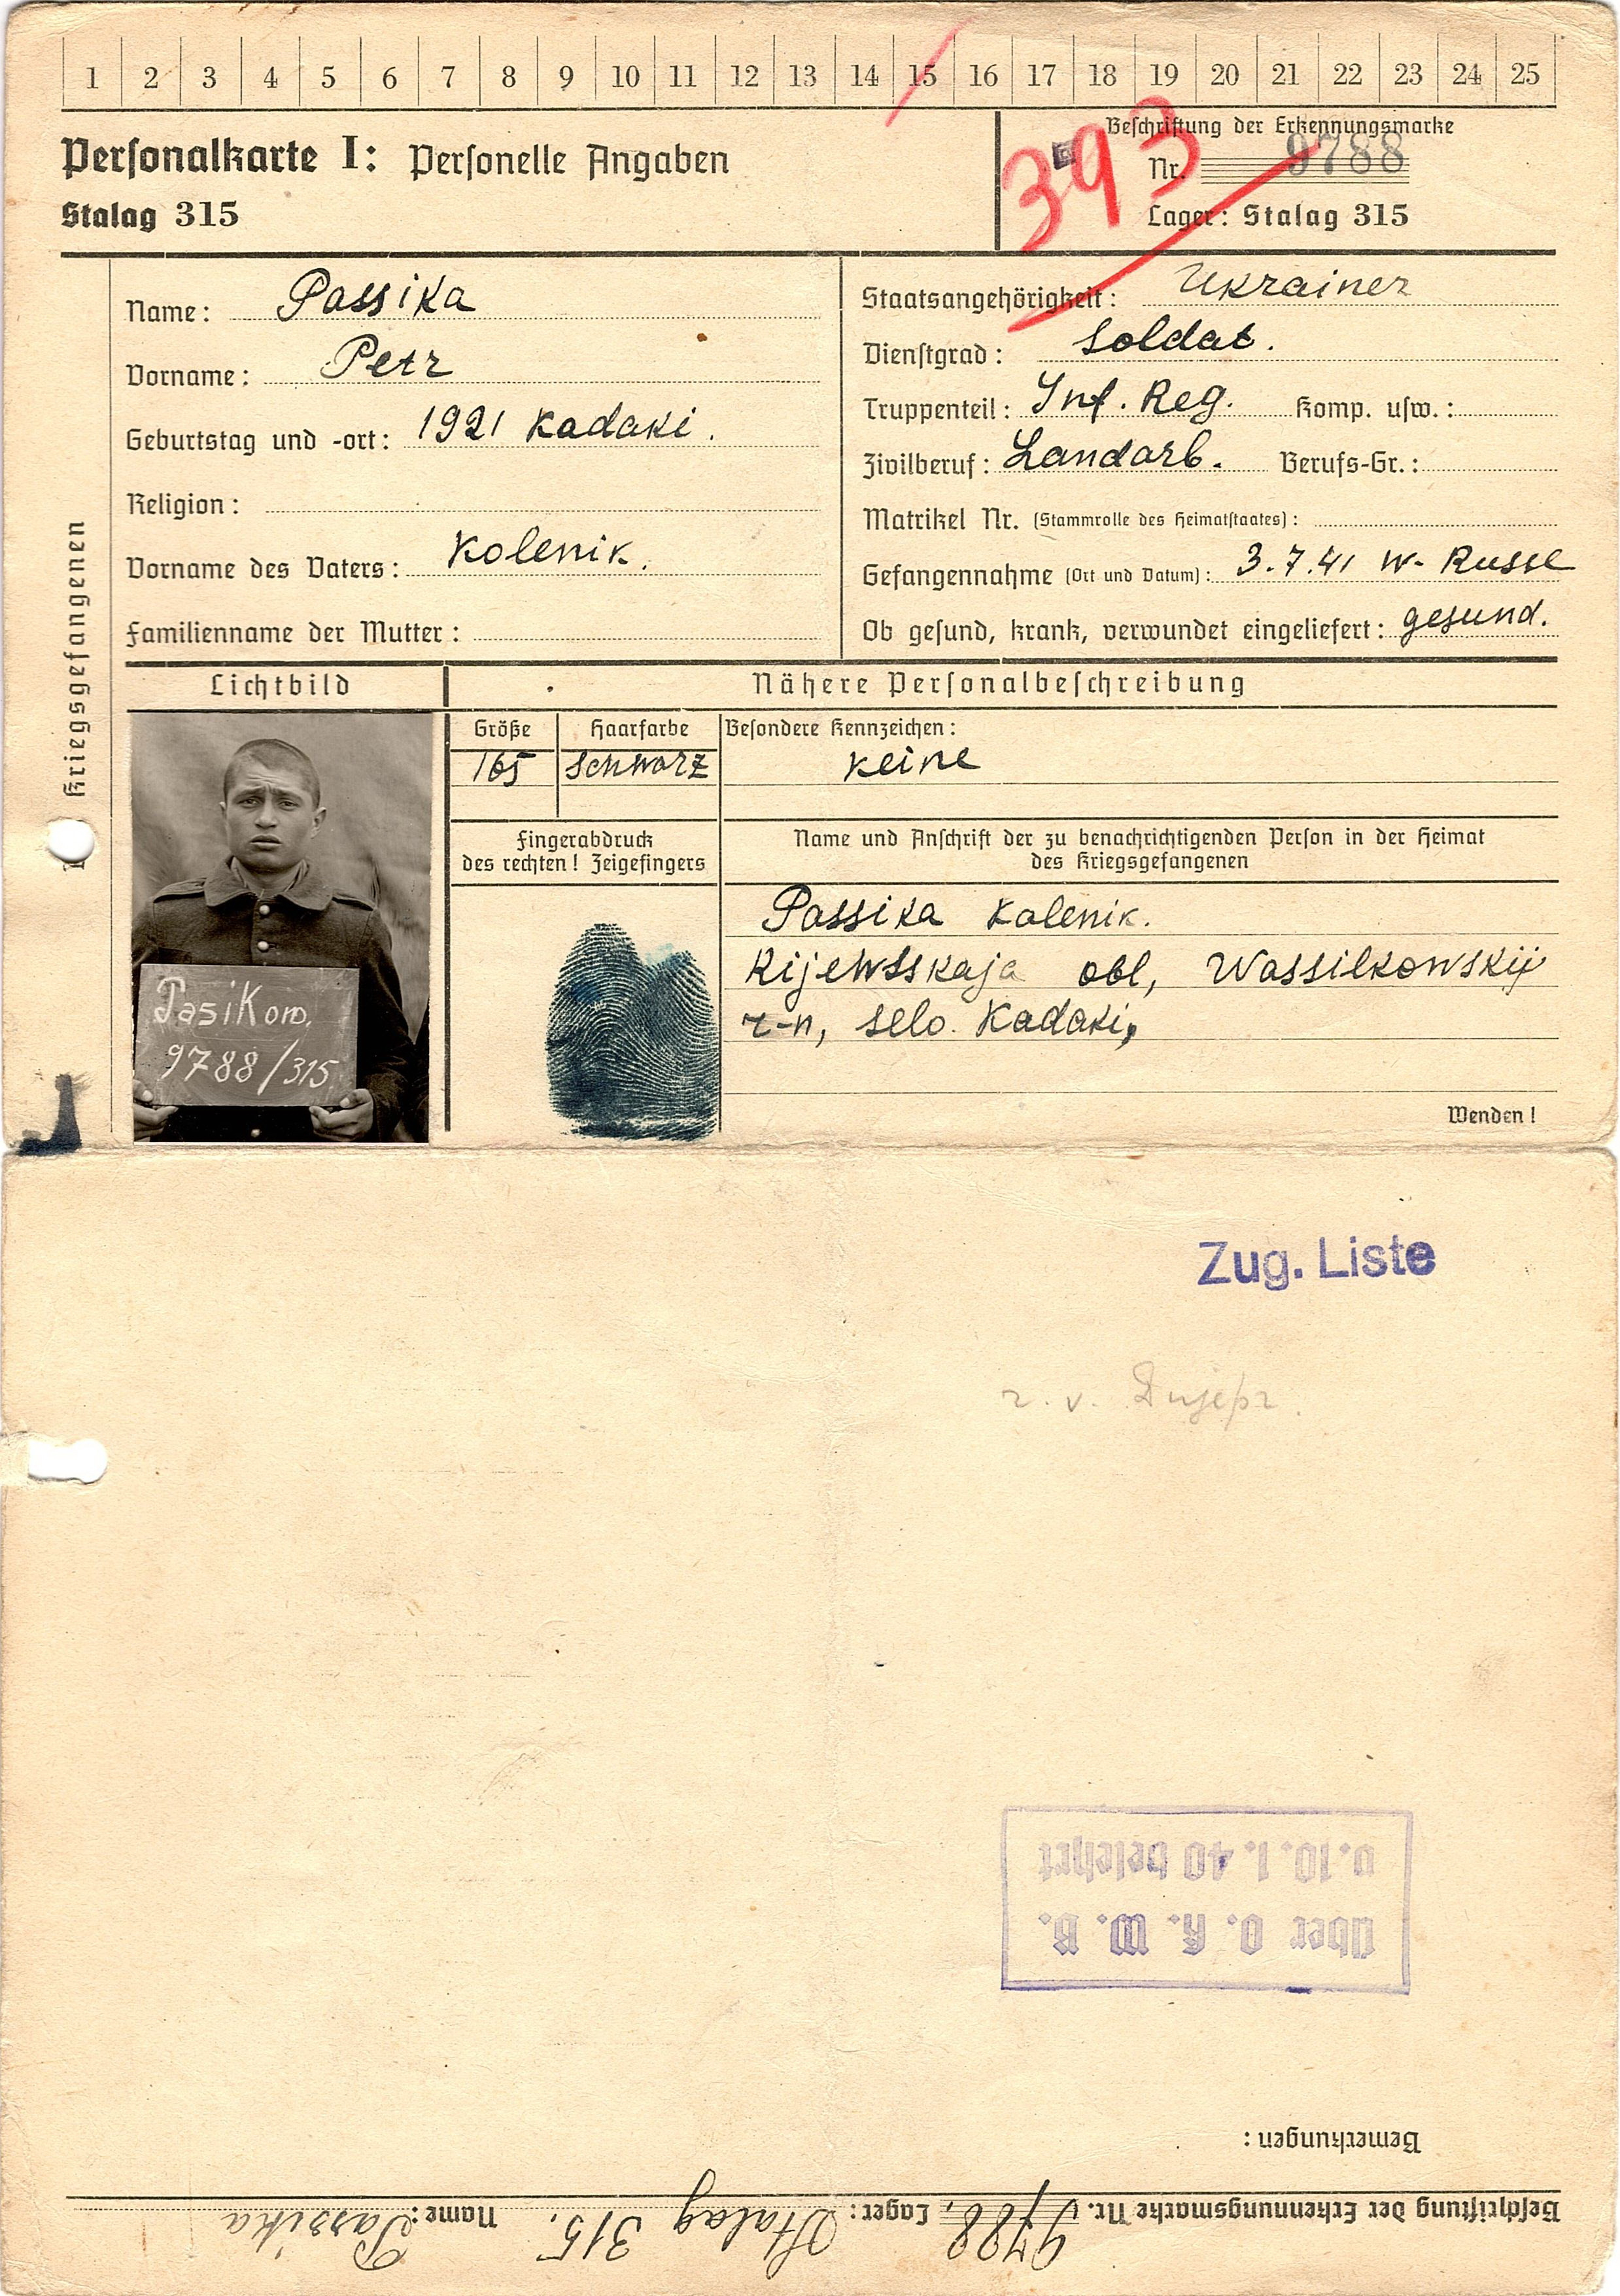 1 2 3 4 5 6 7 8 9 10 11 12 13 14 15 16 17 18 19 20 21 22 23 24 25
Personalkarte I: Personelle Angaben
Stalag 315
393
Beschriftung der Erkennungsmarke
Nr. 9788
Lager: Stalag 315
Kriegsgefangenen
Name: Passika
Vorname: Petr
Geburtstag und -ort: 1921 Kadaki.
Religion:
Vorname des Vaters: Kolenik.
Familienname der Mutter:
Staatsangehörigkeit: Ukrainer
Dienstgrad: Soldat.
Truppenteil: Inf. Reg. Komp. usw.:
Zivilberuf: Landarb. Berufs-Gr.:
Matrikel Nr. (Stammrolle des Heimatstaates):
Gefangennahme (Ort und Datum): 3.7.41 W-Russl
Ob gesund, krank, verwundet eingeliefert: gesund.
Lichtbild
Nähere Personalbeschreibung
Größe Haarfarbe Besondere Kennzeichen:
165 schwarz keine
Fingerabdruck
des rechten! Zeigefingers
Name und Anschrift der zu benachrichtigenden Person in der Heimat
des Kriegsgefangenen
Passika Kolenik.
Kijewsskaja obl, Wassilkowskij
r-n, selo. Kadaki,
PasiKow.
9788/315
Wenden!
Zug. Liste
r. v. Dnjepr.
Über O. K. W. B.
v. 10. 1. 40 belehrt
Bemerkungen:
Beschriftung der Erkennungsmarke Nr. 9788, Lager: Stalag 315. Name: Passika